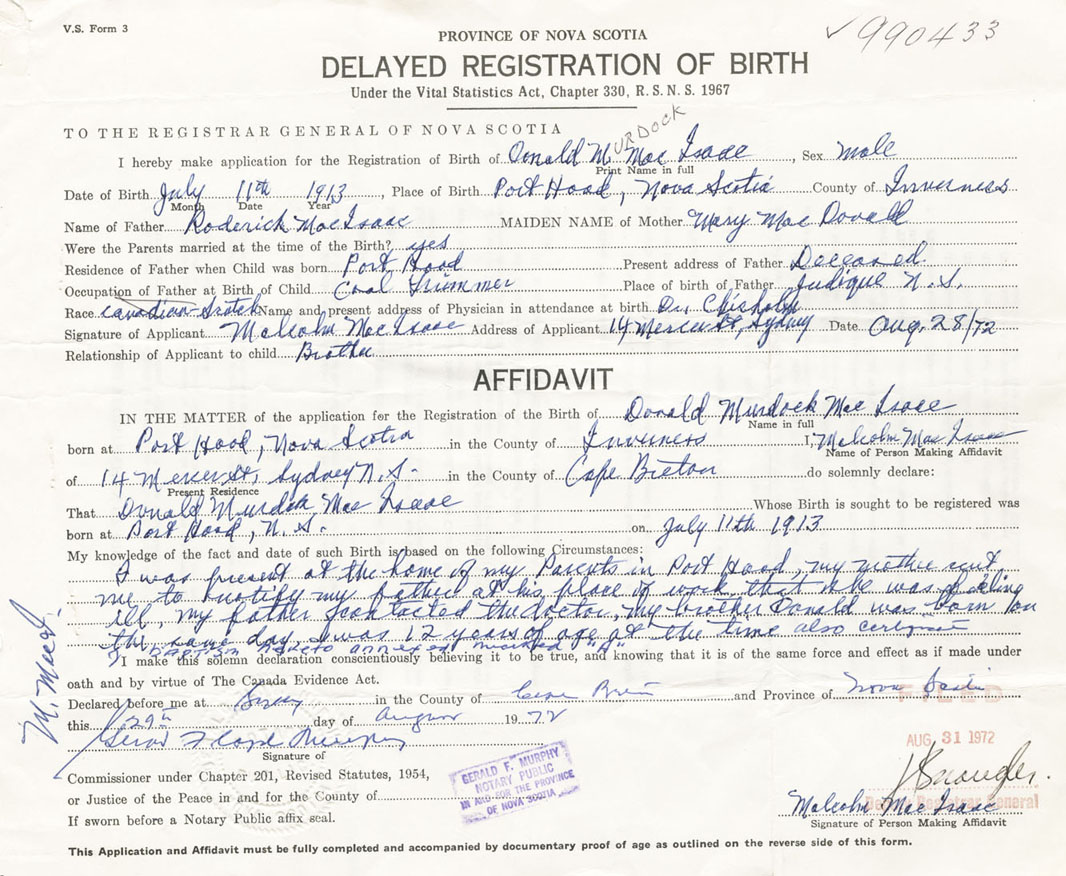 V.S. Form 3
✓990433
PROVINCE OF NOVA SCOTIA
DELAYED REGISTRATION OF BIRTH
Under the Vital Statistics Act, Chapter 330, R.S.N.S. 1967
TO THE REGISTRAR GENERAL OF NOVA SCOTIA
URDOCK
I hereby make application for the Registration of Birth of Donald M. Mac Isaac, Sex male
Print Name in full
Date of Birth July 11th 1913, Place of Birth Port Hood, Nova Scotia County of Inverness
Month Date Year
Name of Father Roderick MacIsaac MAIDEN NAME of Mother Mary Mac Donald
Were the Parents married at the time of the Birth? yes
Residence of Father when Child was born Port Hood Present address of Father Deceased
Occupation of Father at Birth of Child Coal Trimmer Place of birth of Father Judique N.S.
Race Canadian-Scotch Name and present address of Physician in attendance at birth Dr. Chisholm
Signature of Applicant Malcolm Mac Isaac Address of Applicant 14 Mercer St, Sydney Date Aug. 28/72
Relationship of Applicant to child Brother
AFFIDAVIT
IN THE MATTER of the application for the Registration of the Birth of Donald Murdock Mac Isaac
Name in full
born at Port Hood, Nova Scotia in the County of Inverness I, Malcolm Mac Isaac
Name of Person Making Affidavit
of 14 Mercer St, Sydney N.S. in the County of Cape Breton do solemnly declare:
Present Residence
That Donald Murdock Mac Isaac Whose Birth is sought to be registered was
born at Port Hood, N.S. on July 11th 1913
My knowledge of the fact and date of such Birth is based on the following Circumstances:
I was present at the home of my Parents in Port Hood, my mother sent
me to notify my father at his place of work, that she was feeling
ill, my father contacted the doctor, my brother Donald was born on
the same day, I was 12 years of age at the time also certificate
of baptism hereto annexed marked "A"
I make this solemn declaration conscientiously believing it to be true, and knowing that it is of the same force and effect as if made under
oath and by virtue of The Canada Evidence Act.
M. MacI.
Declared before me at Sydney in the County of Cape Breton and Province of Nova Scotia
FILED
this 29th day of August 1972
AUG 31 1972
Gerald Floyd Murphy
Signature of
Commissioner under Chapter 201, Revised Statutes, 1954,
or Justice of the Peace in and for the County of
If sworn before a Notary Public affix seal.
GERALD F. MURPHY
NOTARY PUBLIC
IN AND FOR THE PROVINCE
OF NOVA SCOTIA
Registrar General
Malcolm Mac Isaac
Signature of Person Making Affidavit
This Application and Affidavit must be fully completed and accompanied by documentary proof of age as outlined on the reverse side of this form.